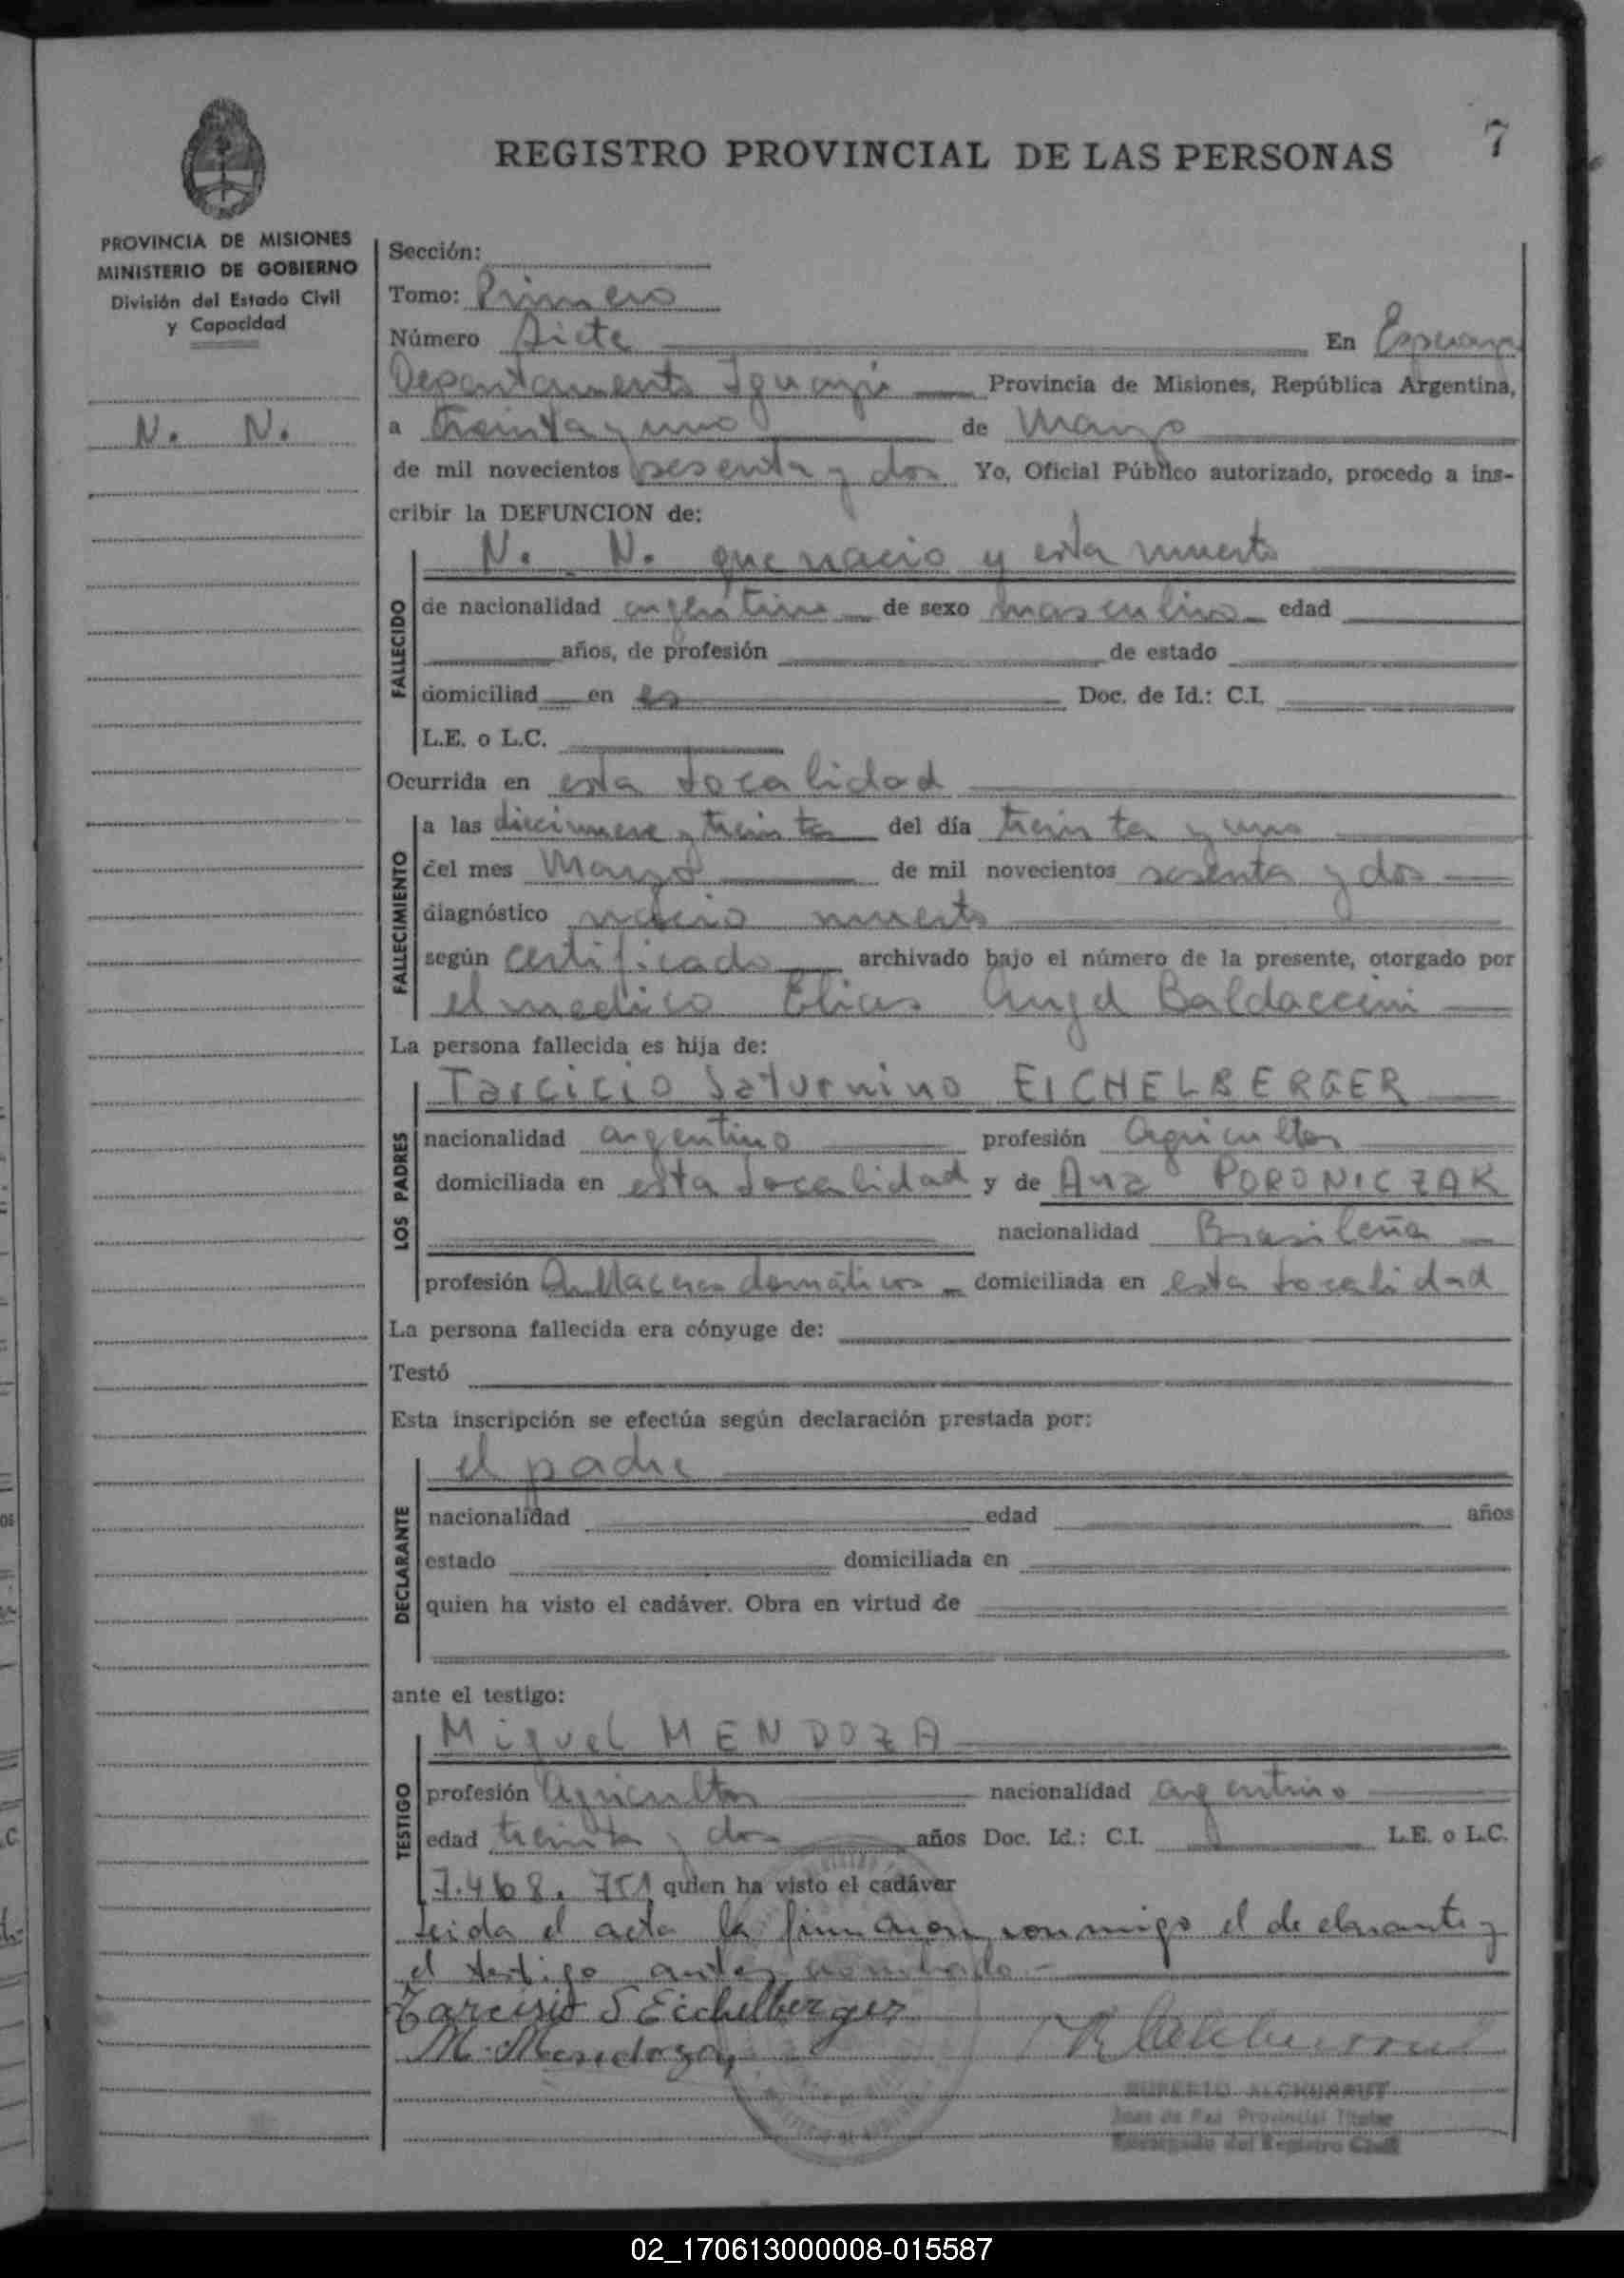 7
REGISTRO PROVINCIAL DE LAS PERSONAS
PROVINCIA DE MISIONES
MINISTERIO DE GOBIERNO
División del Estado Civil
y Capacidad
N. N.
Sección:
Tomo: Primero
Número Siete En Esperanza
Departamento Iguazú Provincia de Misiones, República Argentina,
a treinta y uno de Marzo
de mil novecientos sesenta y dos Yo, Oficial Público autorizado, procedo a ins-
cribir la DEFUNCION de:
N. N. que nacio y esta muerto
FALLECIDO
de nacionalidad argentino de sexo masculino edad
años, de profesión de estado
domiciliad en Doc. de Id.: C.I.
L.E. o L.C.
Ocurrida en esta localidad
FALLECIMIENTO
a las diecinueve y treinta del día treinta y uno
del mes Marzo de mil novecientos sesenta y dos
diagnóstico nacio muerto
según certificado archivado bajo el número de la presente, otorgado por
el medico Elias Angel Baldaccini
La persona fallecida es hija de:
Tarcicio Saturnino EICHELBERGER
LOS PADRES
nacionalidad argentino profesión agricultor
domiciliada en esta localidad y de Ana PORONICZAK
nacionalidad Brasileña
profesión domiciliada en esta localidad
La persona fallecida era cónyuge de:
Testó
Esta inscripción se efectúa según declaración prestada por:
el padre
DECLARANTE
nacionalidad edad años
estado domiciliada en
quien ha visto el cadáver. Obra en virtud de
ante el testigo:
Miguel MENDOZA
TESTIGO
profesión agricultor nacionalidad argentino
edad treinta y dos años Doc. Id.: C.I. L.E. o L.C.
7.468.751 quien ha visto el cadáver
Leida el acta la firmaron conmigo el declarante y
el testigo antes nombrado.-
Tarcisio S Eichelberger
M. Mendoza
Juez de Paz Provincial Titular
Encargado del Registro Civil
02_170613000008-015587